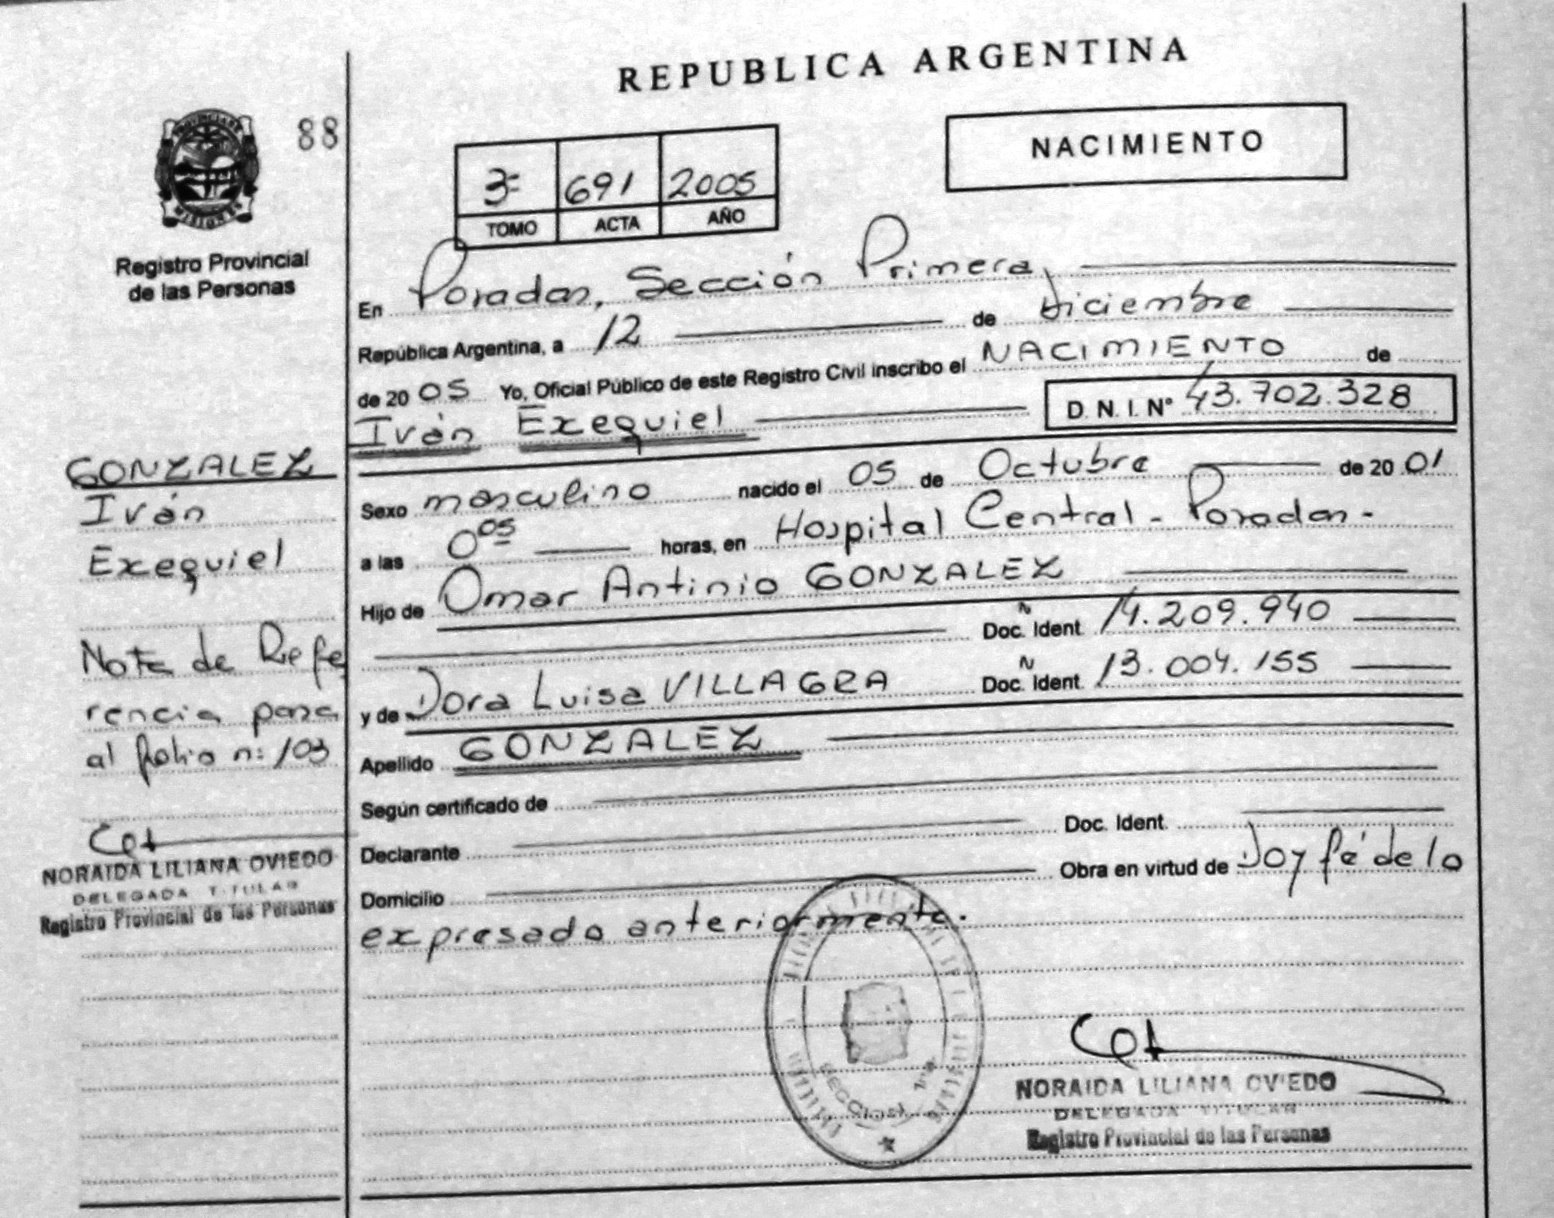 REPUBLICA ARGENTINA
88
NACIMIENTO
3= 691 2005
TOMO ACTA AÑO
MISIONES
Registro Provincial
de las Personas
En Posadas, Sección Primera,
República Argentina, a 12 de Diciembre
de 20 05 Yo, Oficial Público de este Registro Civil inscribo el NACIMIENTO de
Iván Exequiel D. N. I. N° 43.702.328
GONZALEZ
Iván
Exequiel
Nota de Refe
rencia pasa
al folio n: 103
NORAIDA LILIANA OVIEDO
DELEGADA TITULAR
Registro Provincial de las Personas
Sexo masculino nacido el 05 de Octubre de 20 01
a las 0 05 horas, en Hospital Central - Posadas -
Hijo de Omar Antinio GONZALEZ
Doc. Ident. 14.209.940
y de Dora Luisa VILLAGRA Doc. Ident. 13.004.155
Apellido GONZALEZ
Según certificado de
Declarante Doc. Ident.
Domicilio Obra en virtud de Doy fé de lo
expresado anteriormente.
SECCION 1ra
NORAIDA LILIANA OVIEDO
DELEGADA TITULAR
Registro Provincial de las Personas